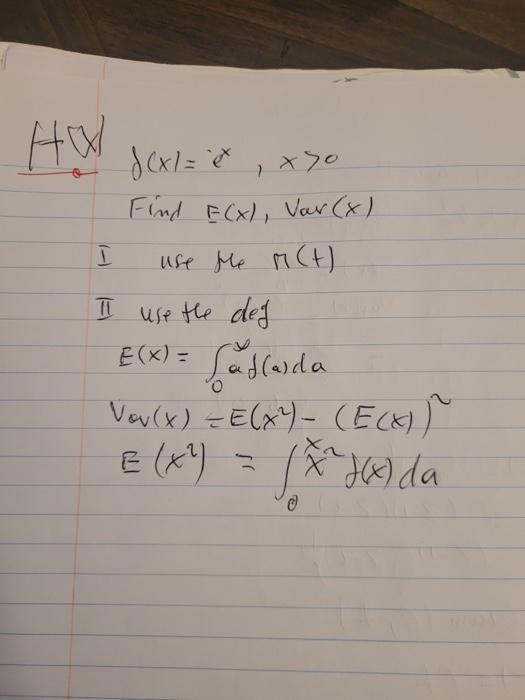 f(x) = e^x, x>0
Find E(x), Var(x)
I use the M(t)
II use the def
E(x) = ∫_0^∞ a f(a) da
Var(x) = E(x²) - (E(x))²
E(x²) = ∫_0^x x² f(x) da